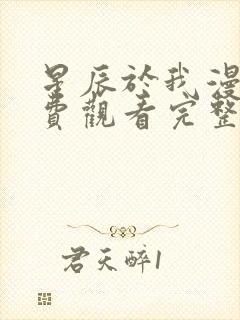 星辰於我漫
費觀看完整
君天醉1